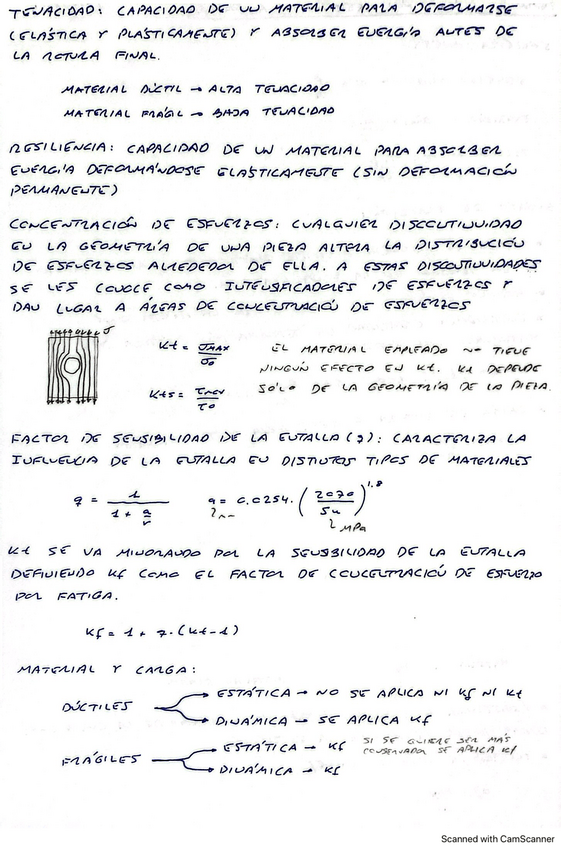 TENACIDAD: CAPACIDAD DE UN MATERIAL PARA DEFORMARSE
(ELÁSTICA Y PLÁSTICAMENTE) Y ABSORBER ENERGÍA ANTES DE
LA ROTURA FINAL.
MATERIAL DÚCTIL → ALTA TENACIDAD
MATERIAL FRÁGIL → BAJA TENACIDAD
RESILIENCIA: CAPACIDAD DE UN MATERIAL PARA ABSORBER
ENERGÍA DEFORMÁNDOSE ELÁSTICAMENTE (SIN DEFORMACIÓN
PERMANENTE)
CONCENTRACIÓN DE ESFUERZOS: CUALQUIER DISCONTINUIDAD
EN LA GEOMETRÍA DE UNA PIEZA ALTERA LA DISTRIBUCIÓN
DE ESFUERZOS ALREDEDOR DE ELLA. A ESTAS DISCONTINUIDADES
SE LES CONOCE COMO INTENSIFICADORES DE ESFUERZOS Y
DAN LUGAR A ÁREAS DE CONCENTRACIÓN DE ESFUERZOS
σ
Kt = σMAX / σ0
EL MATERIAL EMPLEADO NO TIENE
NINGÚN EFECTO EN Kt. Kt DEPENDE
SÓLO DE LA GEOMETRÍA DE LA PIEZA.
Kts = τMAX / τ0
FACTOR DE SENSIBILIDAD DE LA ENTALLA (q): CARACTERIZA LA
INFLUENCIA DE LA ENTALLA EN DISTINTOS TIPOS DE MATERIALES
q = 1 / (1 + a/r)
a = 0.0254 · (2070 / Su)^1.8
mm
MPa
Kt SE VA MINORANDO POR LA SENSIBILIDAD DE LA ENTALLA
DEFINIENDO Kf COMO EL FACTOR DE CONCENTRACIÓN DE ESFUERZO
POR FATIGA.
Kf = 1 + q · (Kt - 1)
MATERIAL Y CARGA:
DÚCTILES
ESTÁTICA → NO SE APLICA NI Kf NI Kt
DINÁMICA → SE APLICA Kf
FRÁGILES
ESTÁTICA → Kf
SI SE QUIERE SER MÁS
CONSERVADOR SE APLICA Kf
DINÁMICA → Kf
Scanned with CamScanner